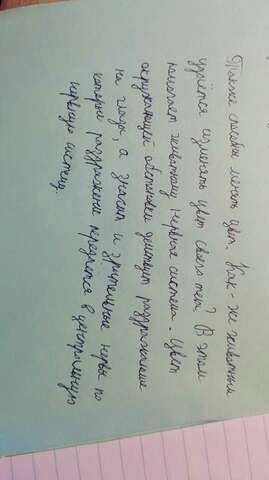 Также способы менять цвет. Как-же животным
удаётся изменять цвет своего тела? В этом
помогает животному нервная система. Цвет
окружающей обстановки действует раздражающе
на глаза, а значит и зрительные нервы по
которым раздражение передается в центральную
нервную систему.